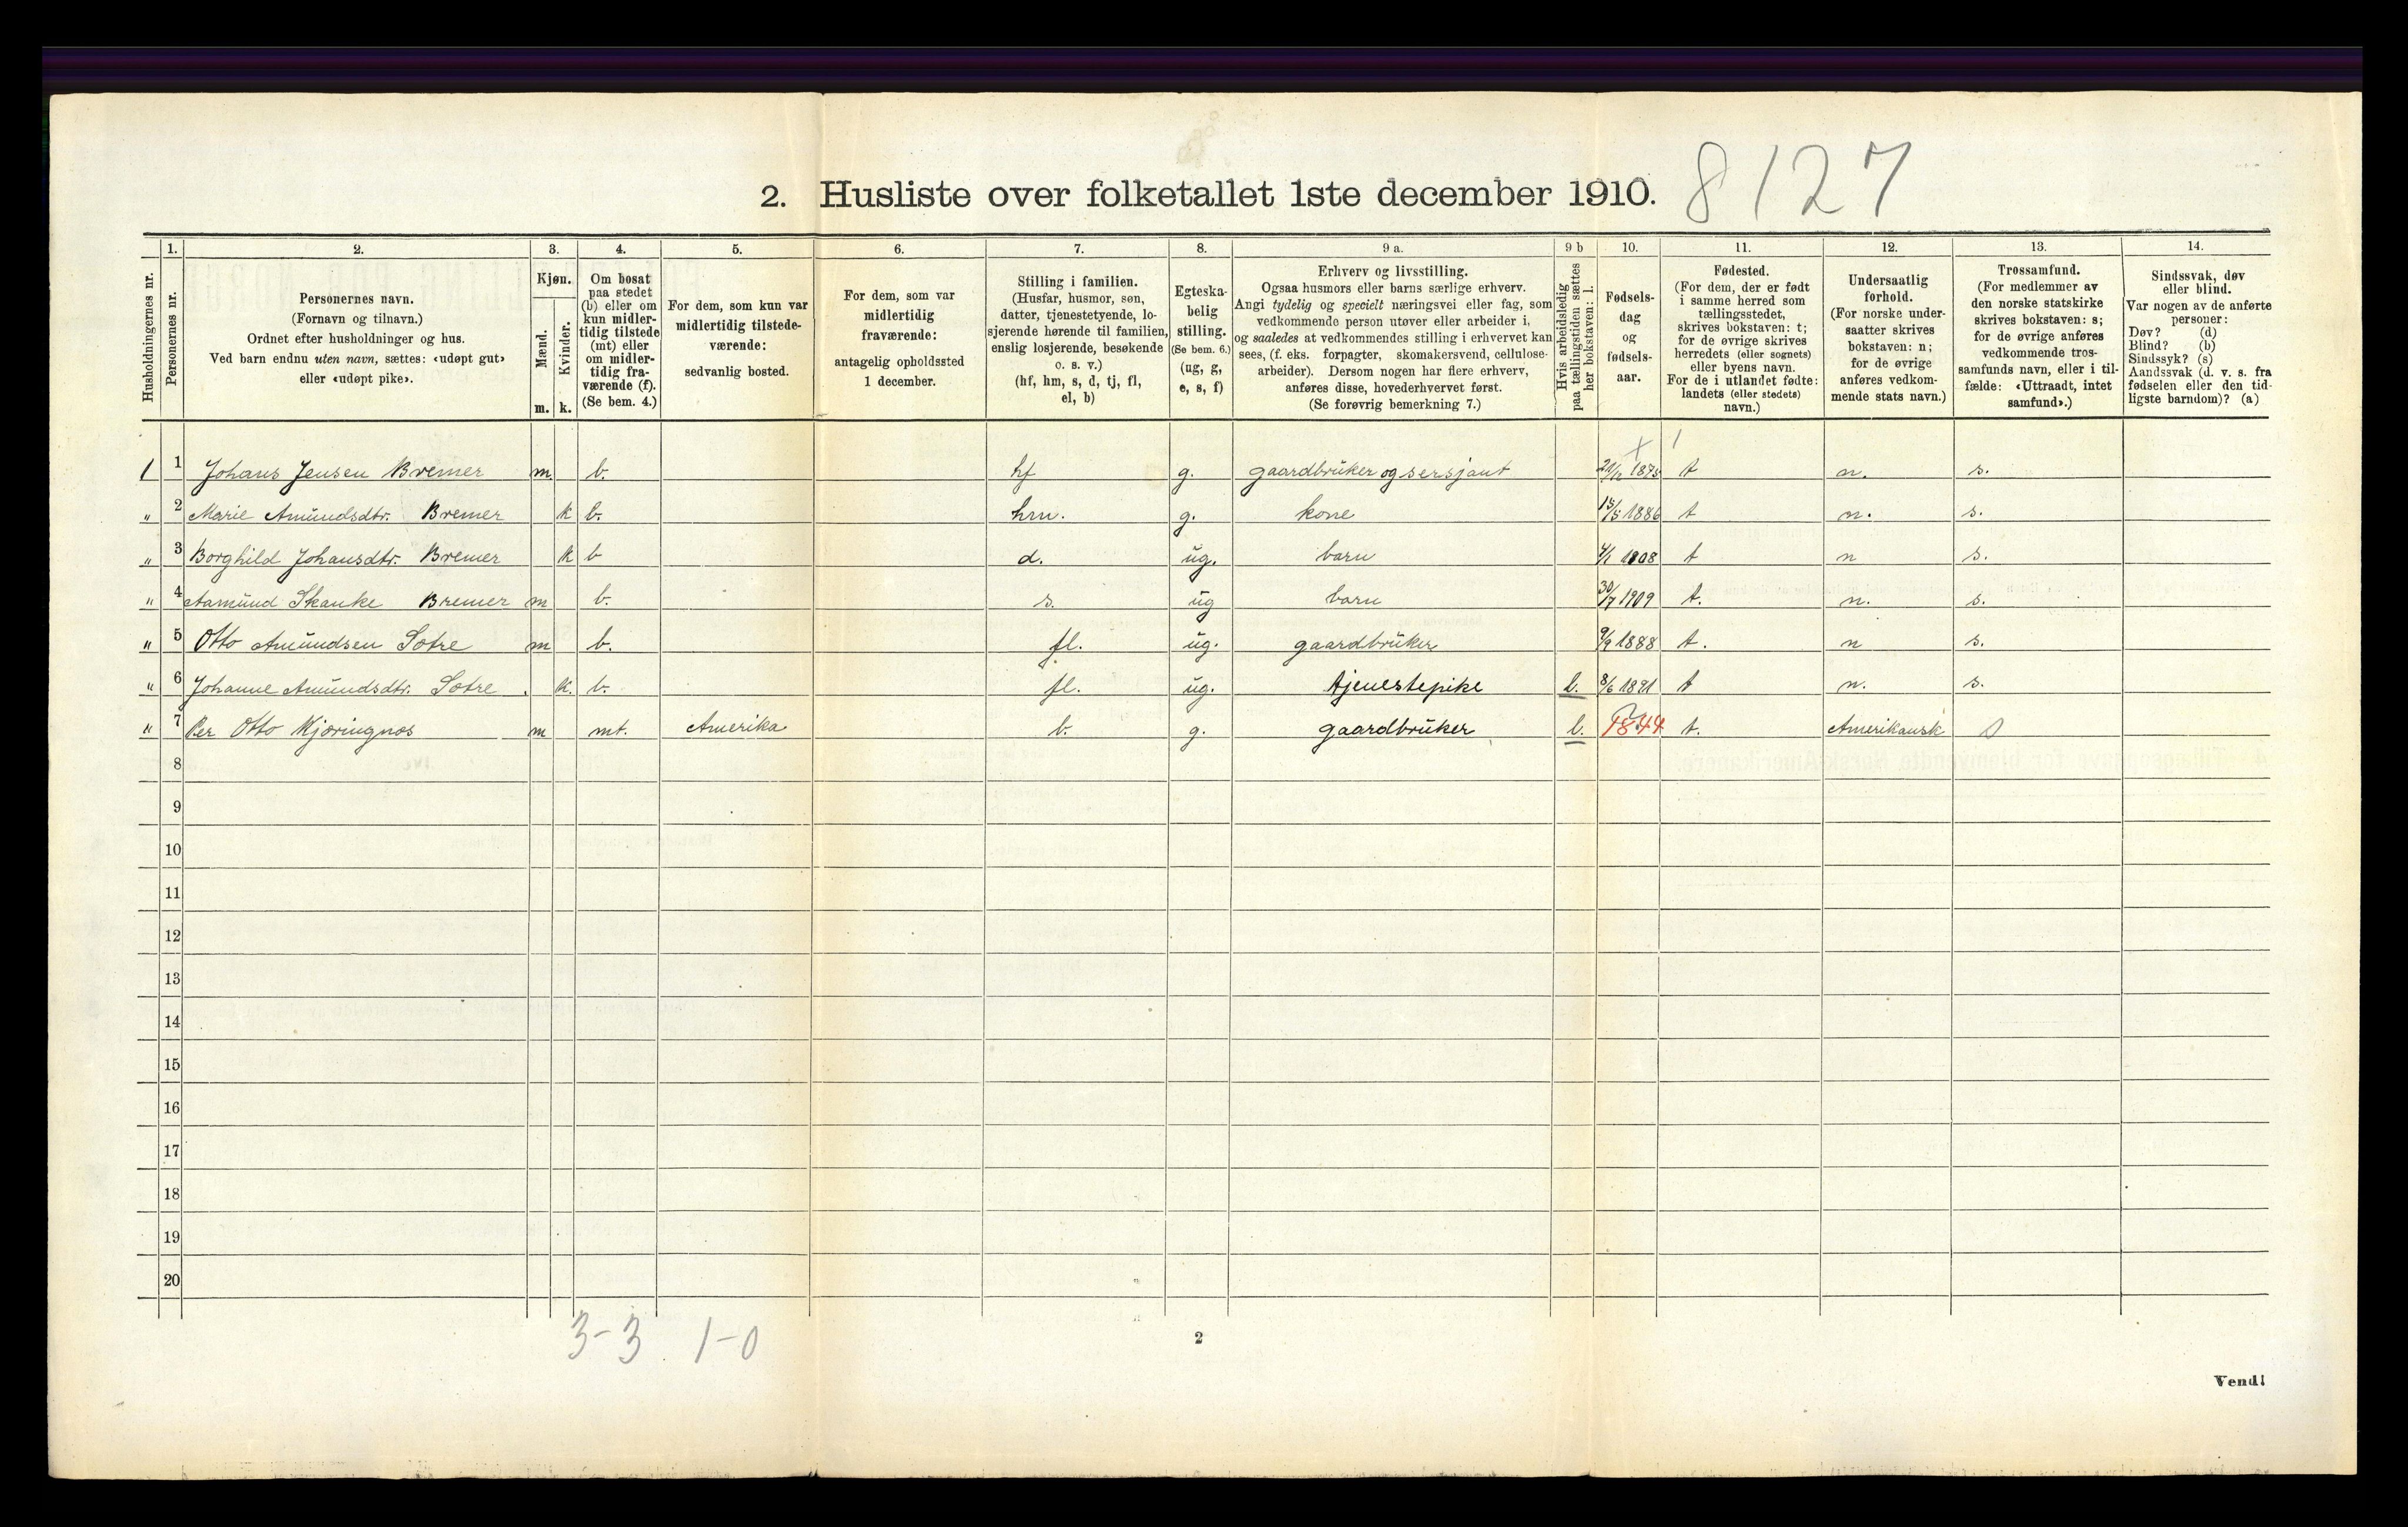 2. Husliste over folketallet 1ste december 1910. 8127
Husholdningernes nr.
1. Personernes nr.
2. Personernes navn.
(Fornavn og tilnavn.)
Ordnet efter husholdninger og hus.
Ved barn endnu uten navn, sættes: «udøpt gut»
eller «udøpt pike».
3. Kjøn.
Mænd. m.
Kvinder. k.
4. Om bosat
paa stedet
(b) eller om
kun midler-
tidig tilstede
(mt) eller
om midler-
tidig fra-
værende (f).
(Se bem. 4.)
5. For dem, som kun var
midlertidig tilstede-
værende:
sedvanlig bosted.
6. For dem, som var
midlertidig
fraværende:
antagelig opholdssted
1 december.
7. Stilling i familien.
(Husfar, husmor, søn,
datter, tjenestetyende, lo-
sjerende hørende til familien,
enslig losjerende, besøkende
o. s. v.)
(hf, hm, s, d, tj, fl,
el, b)
8. Egteska-
belig
stilling.
(Se bem. 6.)
(ug, g,
e, s, f)
9 a. Erhverv og livsstilling.
Ogsaa husmors eller barns særlige erhverv.
Angi tydelig og specielt næringsvei eller fag, som
vedkommende person utøver eller arbeider i,
og saaledes at vedkommendes stilling i erhvervet kan
sees, (f. eks. forpagter, skomakersvend, cellulose-
arbeider). Dersom nogen har flere erhverv,
anføres disse, hovederhvervet først.
(Se forøvrig bemerkning 7.)
9 b Hvis arbeidsledig
paa tællingstiden sættes
her bokstaven: l.
10. Fødsels-
dag
og
fødsels-
aar.
11. Fødested.
(For dem, der er født
i samme herred som
tællingsstedet,
skrives bokstaven: t;
for de øvrige skrives
herredets (eller sognets)
eller byens navn.
For de i utlandet fødte:
landets (eller stedets)
navn.)
12. Undersaatlig
forhold.
(For norske under-
saatter skrives
bokstaven: n;
for de øvrige
anføres vedkom-
mende stats navn.)
13. Trossamfund.
(For medlemmer av
den norske statskirke
skrives bokstaven: s;
for de øvrige anføres
vedkommende tros-
samfunds navn, eller i til-
fælde: «Uttraadt, intet
samfund».)
14. Sindssvak, døv
eller blind.
Var nogen av de anførte
personer:
Døv? (d)
Blind? (b)
Sindssyk? (s)
Aandssvak (d. v. s. fra
fødselen eller den tid-
ligste barndom)? (a)
1 1 Johans Jensen Bremer m. b. hf g. gaardbrüker og sersjant 1875 t n. s.
" 2 Marie Amündsdtr. Bremer k b. hm. g. kone 1886 t n. s.
" 3 Borghild Johansdtr. Bremer k b d. üg. barn 1908 t n s.
" 4 Aamünd Skanke Bremer m b. s. üg barn 30/7 1909 t. n. s.
" 5 Otto Amündsen Sætre m b. fl. üg. gaardbrüker 9/9 1888 t. n s.
" 6 Johanne Amündsdtr. Sætre. k. b. fl. üg. tjenestepike l. 8/6 1891 t n. s.
" 7 Per Otto Kjæringnæs m mt. Amerika b. g. gaardbrüker l. 1844 t. Amerikansk
8
9
10
11
12
13
14
15
16
17
18
19
20
3-3 1-0
2
Vend!